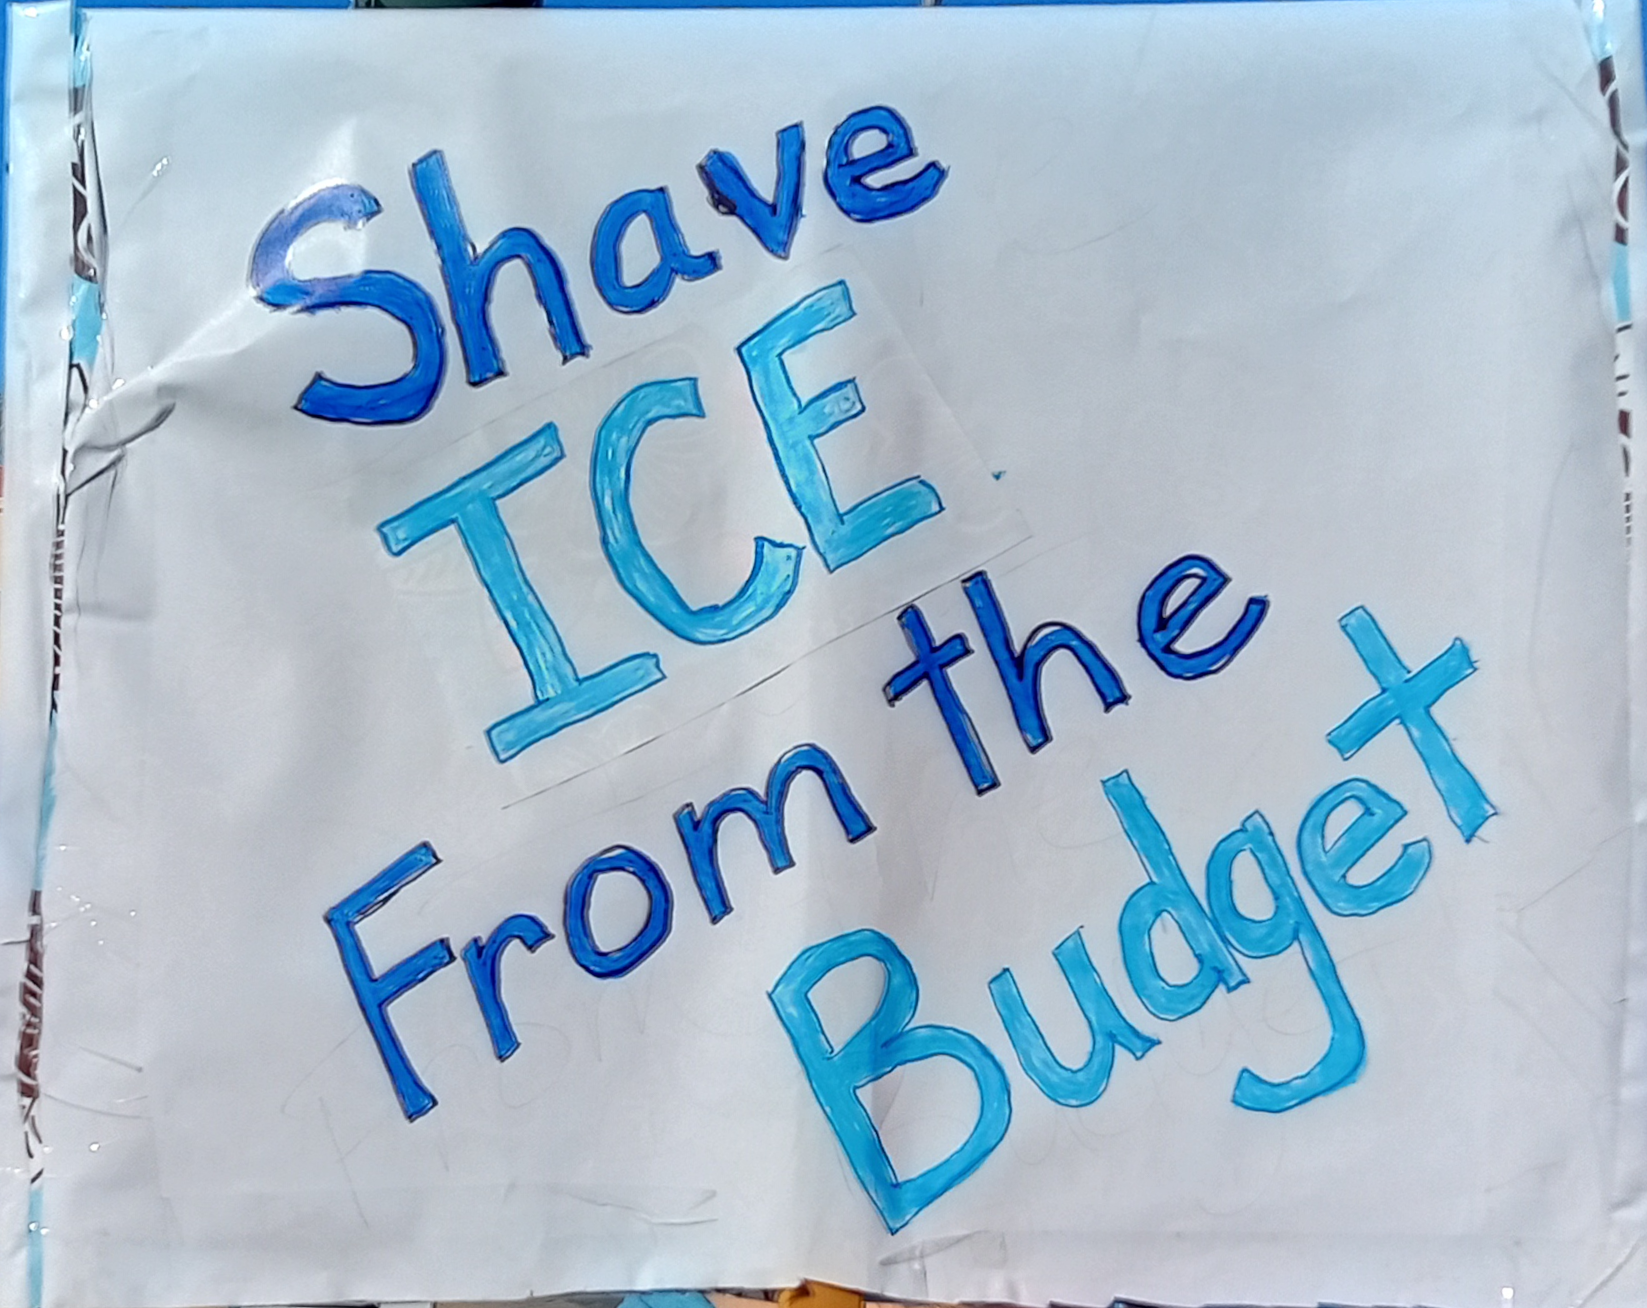 Shave
ICE
From the
Budget